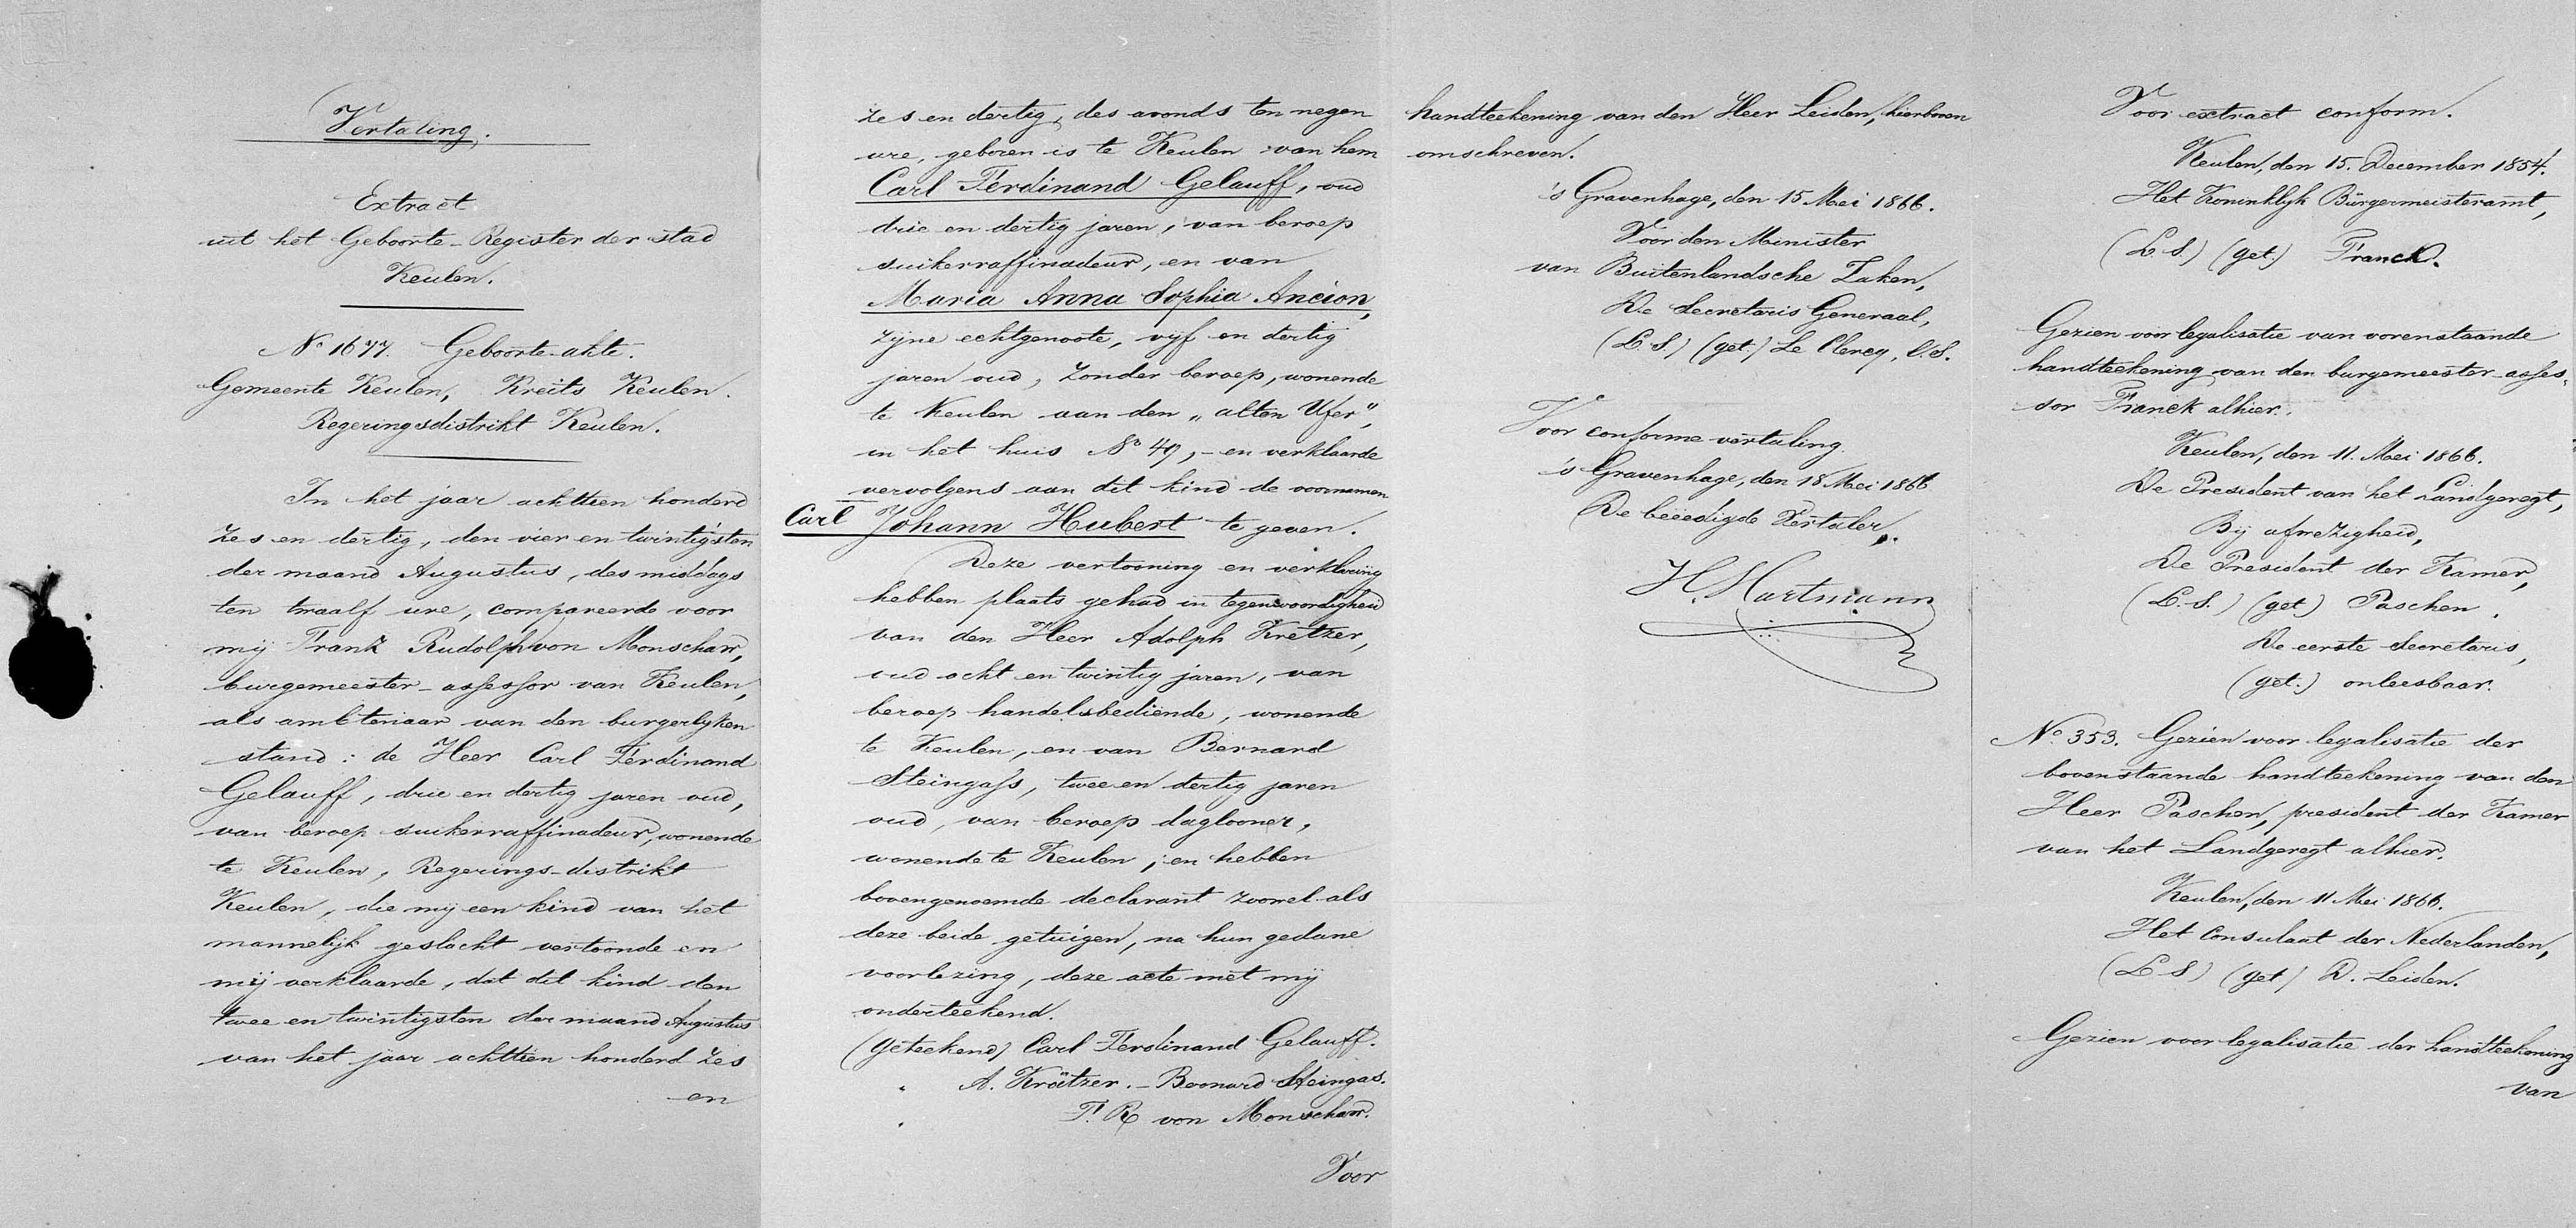 Vertaling.
Extract
uit het Geboorte-Register der stad
Keulen.
No 1677. Geboorte-akte.
Gemeente Keulen, Kreits Keulen.
Regeringsdistrikt Keulen.
In het jaar achttien honderd
zes en dertig, den vier en twintigsten
der maand Augustus, des middags
ten twaalf ure, compareerde voor
mij Frank Rudolph von Monschaw,
burgemeester-assessor van Keulen,
als ambtenaar van den burgerlyken
stand: de Heer Carl Ferdinand
Gelauff, drie en dertig jaren oud,
van beroep suikerraffinadeur, wonende
te Keulen, Regerings-distrikt
Keulen, die mij een kind van het
mannelijk geslacht vertoonde en
mij verklaarde, dat dit kind den
twee en twintigsten der maand Augustus
van het jaar achttien honderd zes
en
zes en dertig, des avonds ten negen
ure, geboren is te Keulen van hem
Carl Ferdinand Gelauff, oud
drie en dertig jaren, van beroep
suikerraffinadeur, en van
Maria Anna Sophia Ancion,
zijne echtgenoote, vijf en dertig
jaren oud, zonder beroep, wonende
te Keulen aan den "alten Ufer",
in het huis No 49, - en verklaarde
vervolgens aan dit kind de voornamen
Carl Johann Hubert te geven.
Deze vertooning en verklaring
hebben plaats gehad in tegenwoordigheid
van den Heer Adolph Kretzer,
oud acht en twintig jaren, van
beroep handelsbediende, wonende
te Keulen, en van Bernard
Steingass, twee en dertig jaren
oud, van beroep daglooner,
wonende te Keulen; en hebben
bovengenoemde declarant zoowel als
deze beide getuigen, na hun gedane
voorlezing, deze acte met mij
onderteekend.
(geteekend) Carl Ferdinand Gelauff.
" A. Krätzer. - Bernard Steingas.
" F. R von Monschaw.
Voor
handteekening van den Heer Leiden, hierboven
omschreven.
's Gravenhage, den 15 Mei 1866.
Voor den Minister
van Buitenlandsche Zaken,
De Secretaris Generaal,
(L.S.) (get.) Le Clercq, C.S.
Voor conforme vertaling.
's Gravenhage, den 18 Mei 1866
De beëedigde Vertaler,
H. Hartmann
Voor extract conform.
Keulen, den 15. December 1854.
Het Koninklijk Bürgermeisteramt,
(L.S.) (get.) Franck.
Gezien voor legalisatie van vorenstaande
handteekening van den burgemeester-asses-
sor Franck alhier.
Keulen, den 11. Mei 1866.
De President van het Landgeregt,
Bij afwezigheid,
De President der Kamer,
(L.S.) (get) Paschen.
De eerste Secretaris,
(get.) onleesbaar.
No. 353. Gezien voor legalisatie der
bovenstaande handteekening van den
Heer Paschen, president der Kamer
van het Landgeregt alhier.
Keulen, den 11 Mei 1866.
Het Consulaat der Nederlanden,
(L S) (get) D. Leiden.
Gezien voor legalisatie der handteekening
van